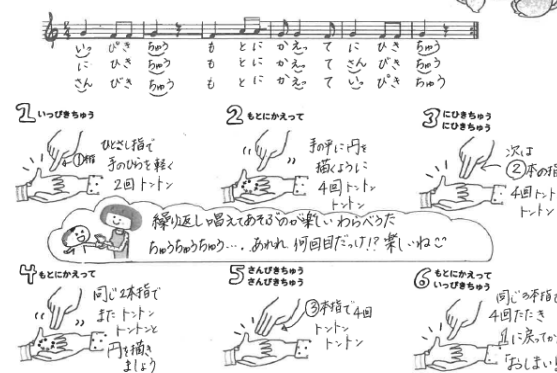 いっ ぴき ちゅう もとに かえっ て に ひき ちゅう
に ひき ちゅう もとに かえっ て さん びき ちゅう
さん びき ちゅう もとに かえっ て いっ ぴき ちゅう
1 いっぴきちゅう
①指
ひとさし指で
手のひらを軽く
2回トントン
2 もとにかえって
手の平に円を
描くように
4回トントン
トントン
3 にひきちゅう
にひきちゅう
次は
②本の指
4回トント
トント
繰り返し唱えてあそぶのが楽しいわらべうた
ちゅうちゅうちゅう…。あれれ、何回目だっけ!?楽しいねこ
4 もとにかえって
同じ2本指で
またトントン
トントンと
円を描き
ましょう
5 さんびきちゅう
さんびきちゅう
③本指で4回
トントン
トントン
6 もとにかえって
いっぴきちゅう
同じ3本指で
4回たたき
1に戻ってか
「おしまい!